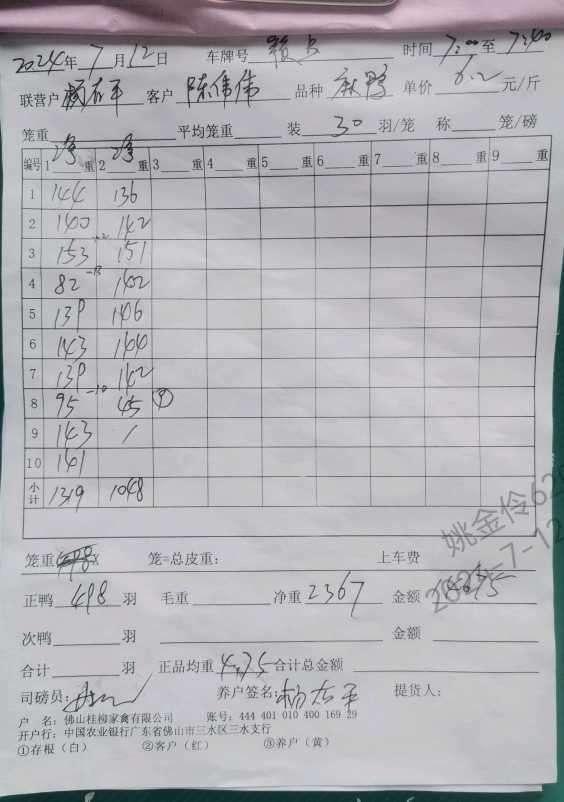 2024年7月12日 车牌号 时间 7:00至7:40
联营户 杨存平 客户 陈伟伟 品种 麻鸭 单价 6.2 元/斤
笼重 平均笼重 装 30 羽/笼 称 笼/磅
编号 1 净 重 2 净 重 3 重 4 重 5 重 6 重 7 重 8 重 9 重
1 144 136
2 140 142
3 153 151
4 82 -13 142
5 139 146
6 143 144
7 139 142
8 95 -10 45 ⑨
9 143 /
10 141
小计 1319 1048
笼重 X 笼=总皮重: 上车费
正鸭 498 羽 毛重 净重 2367 金额
次鸭 羽 金额
合计 羽 正品均重 4.75 合计总金额
司磅员: 养户签名: 杨存平 提货人:
户 名: 佛山桂柳家禽有限公司 账号: 444 401 010 400 169 29
开户行: 中国农业银行广东省佛山市三水区三水支行
①存根(白) ②客户(红) ③养户(黄)
姚金伶